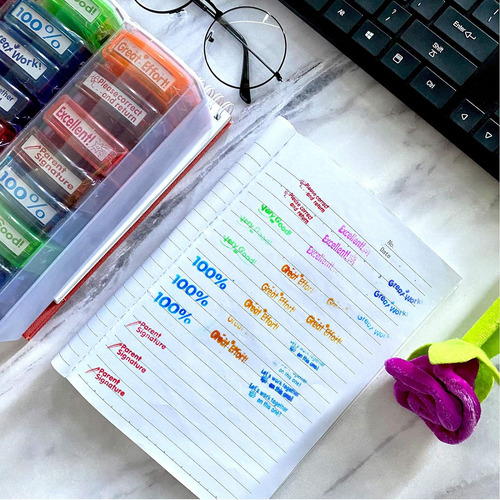 Great Effort!
Please correct
and return
Excellent!
Parent
Signature
100%
Good!
100%
Great Work!
Together
Good!
Alt
Ctrl
Shift
Enter
Ctrl
No.
Date
Please correct
and return
Please correct
and return
Very Good!
Very Good!
Very Good!
Excellent!
Excellent!
Excellent!
100%
100%
100%
Great Effort!
Great Effort!
Great Effort!
Great Effort!
Great Effort!
Great Work!
Great Work!
Great Work!
Parent
Signature
Parent
Signature
Parent
Signature
Let's work together
on this one!
Let's work together
on this one!